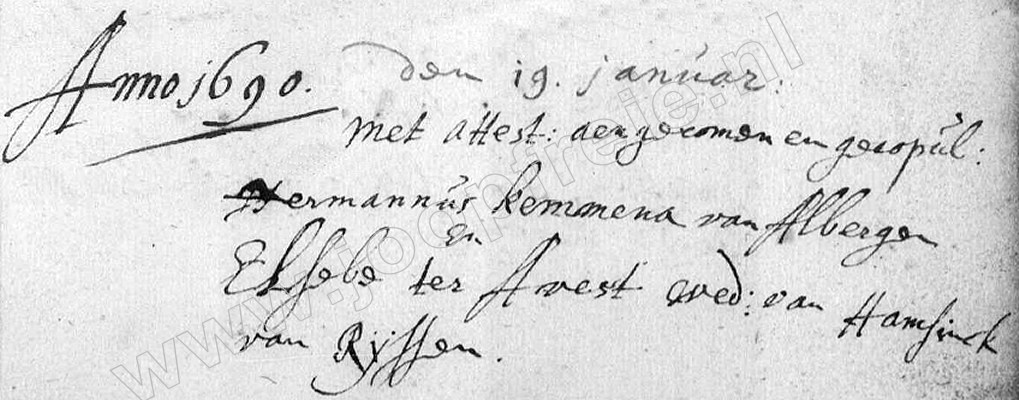 Anno 1690. den 19. januar:
Met attest: aengecomen en gecopul:
Hermannus kemmena van Albergen
En
Elsebe ter Avest wed: van Hamsinck
van Ryssen.
www.jooptreie.nl